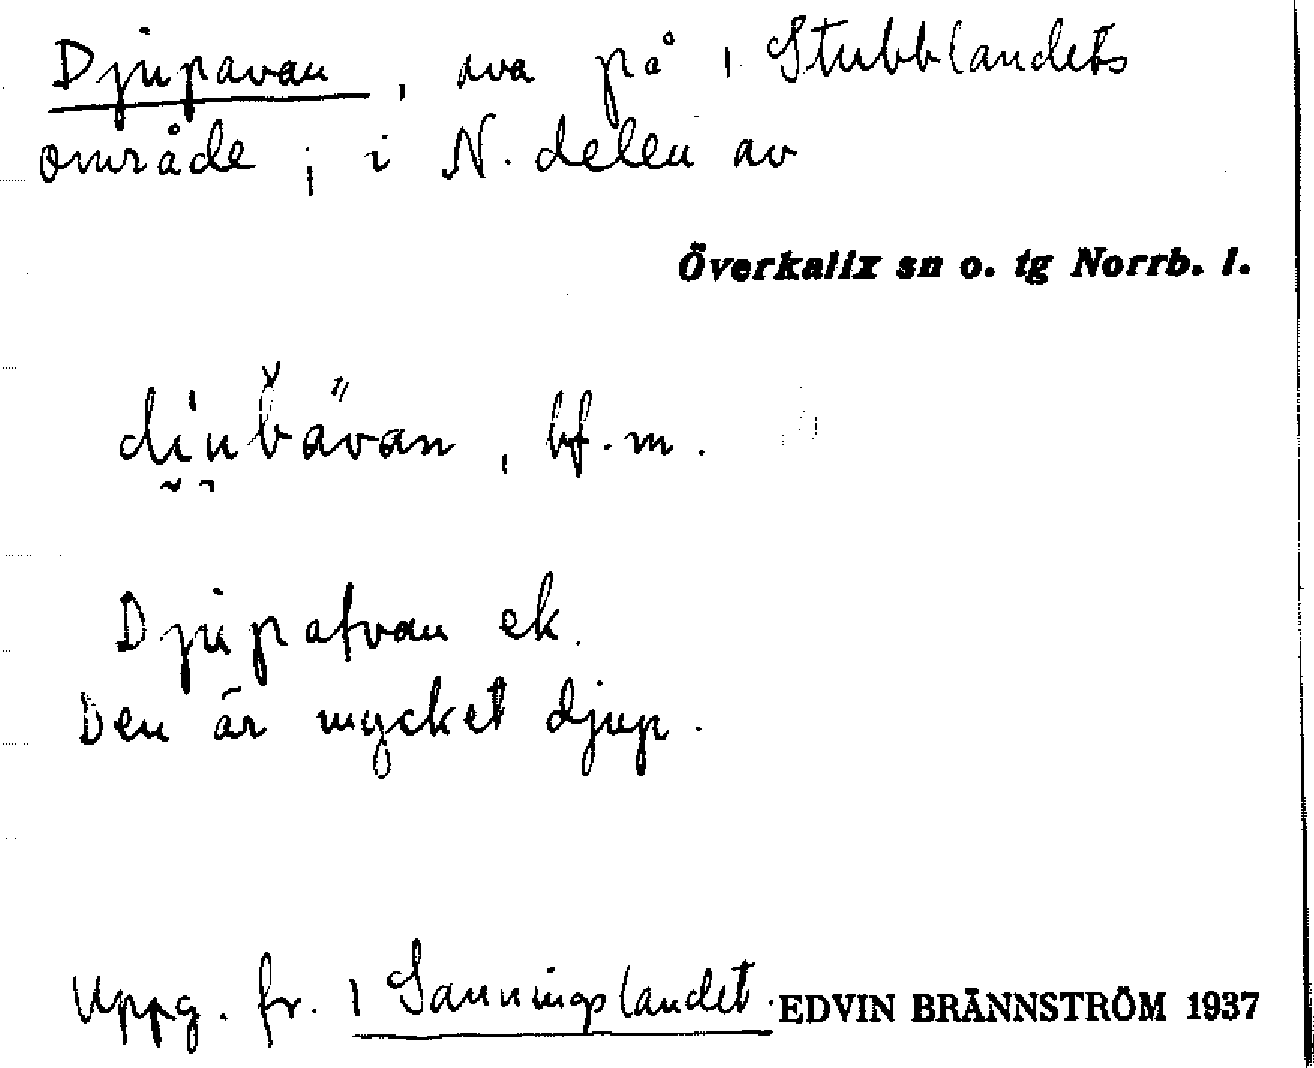 Djupavan, ava på 1 Stubblandets
område; i N. delen av
Överkalix sn o. tg Norrb. l.
bf. m.
Djupafvan ek.
Den är mycket djup.
Uppg. fr. 1 Sanningslandet. EDVIN BRÄNNSTRÖM 1937